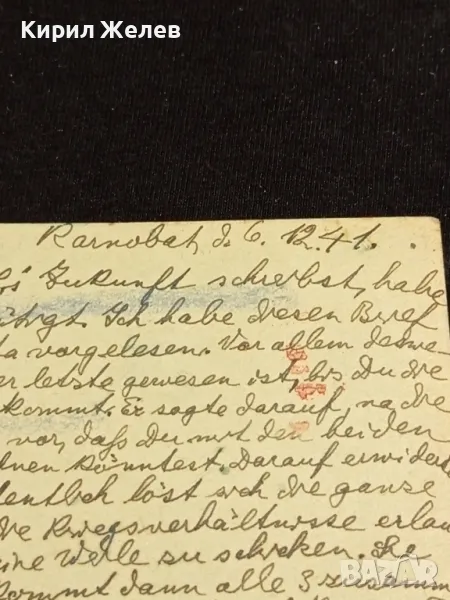 Кирил Желев
Karnobat, d. 6. 12.41.
Zukunft schreibst, habe
Ich habe diesen Brief
vorgelesen. Vor allem deswe-
er letzte gewesen ist, bis Du die
kommt. Er sagte darauf, na die
vor, daß Du mit den beiden
dnen könntest. Darauf erwidert
dentlich löst sich die ganze
die Kriegsverhältnisse erlau
eine Welle zu schicken. Sie
kommt dann alle 3 zusamm
bazar